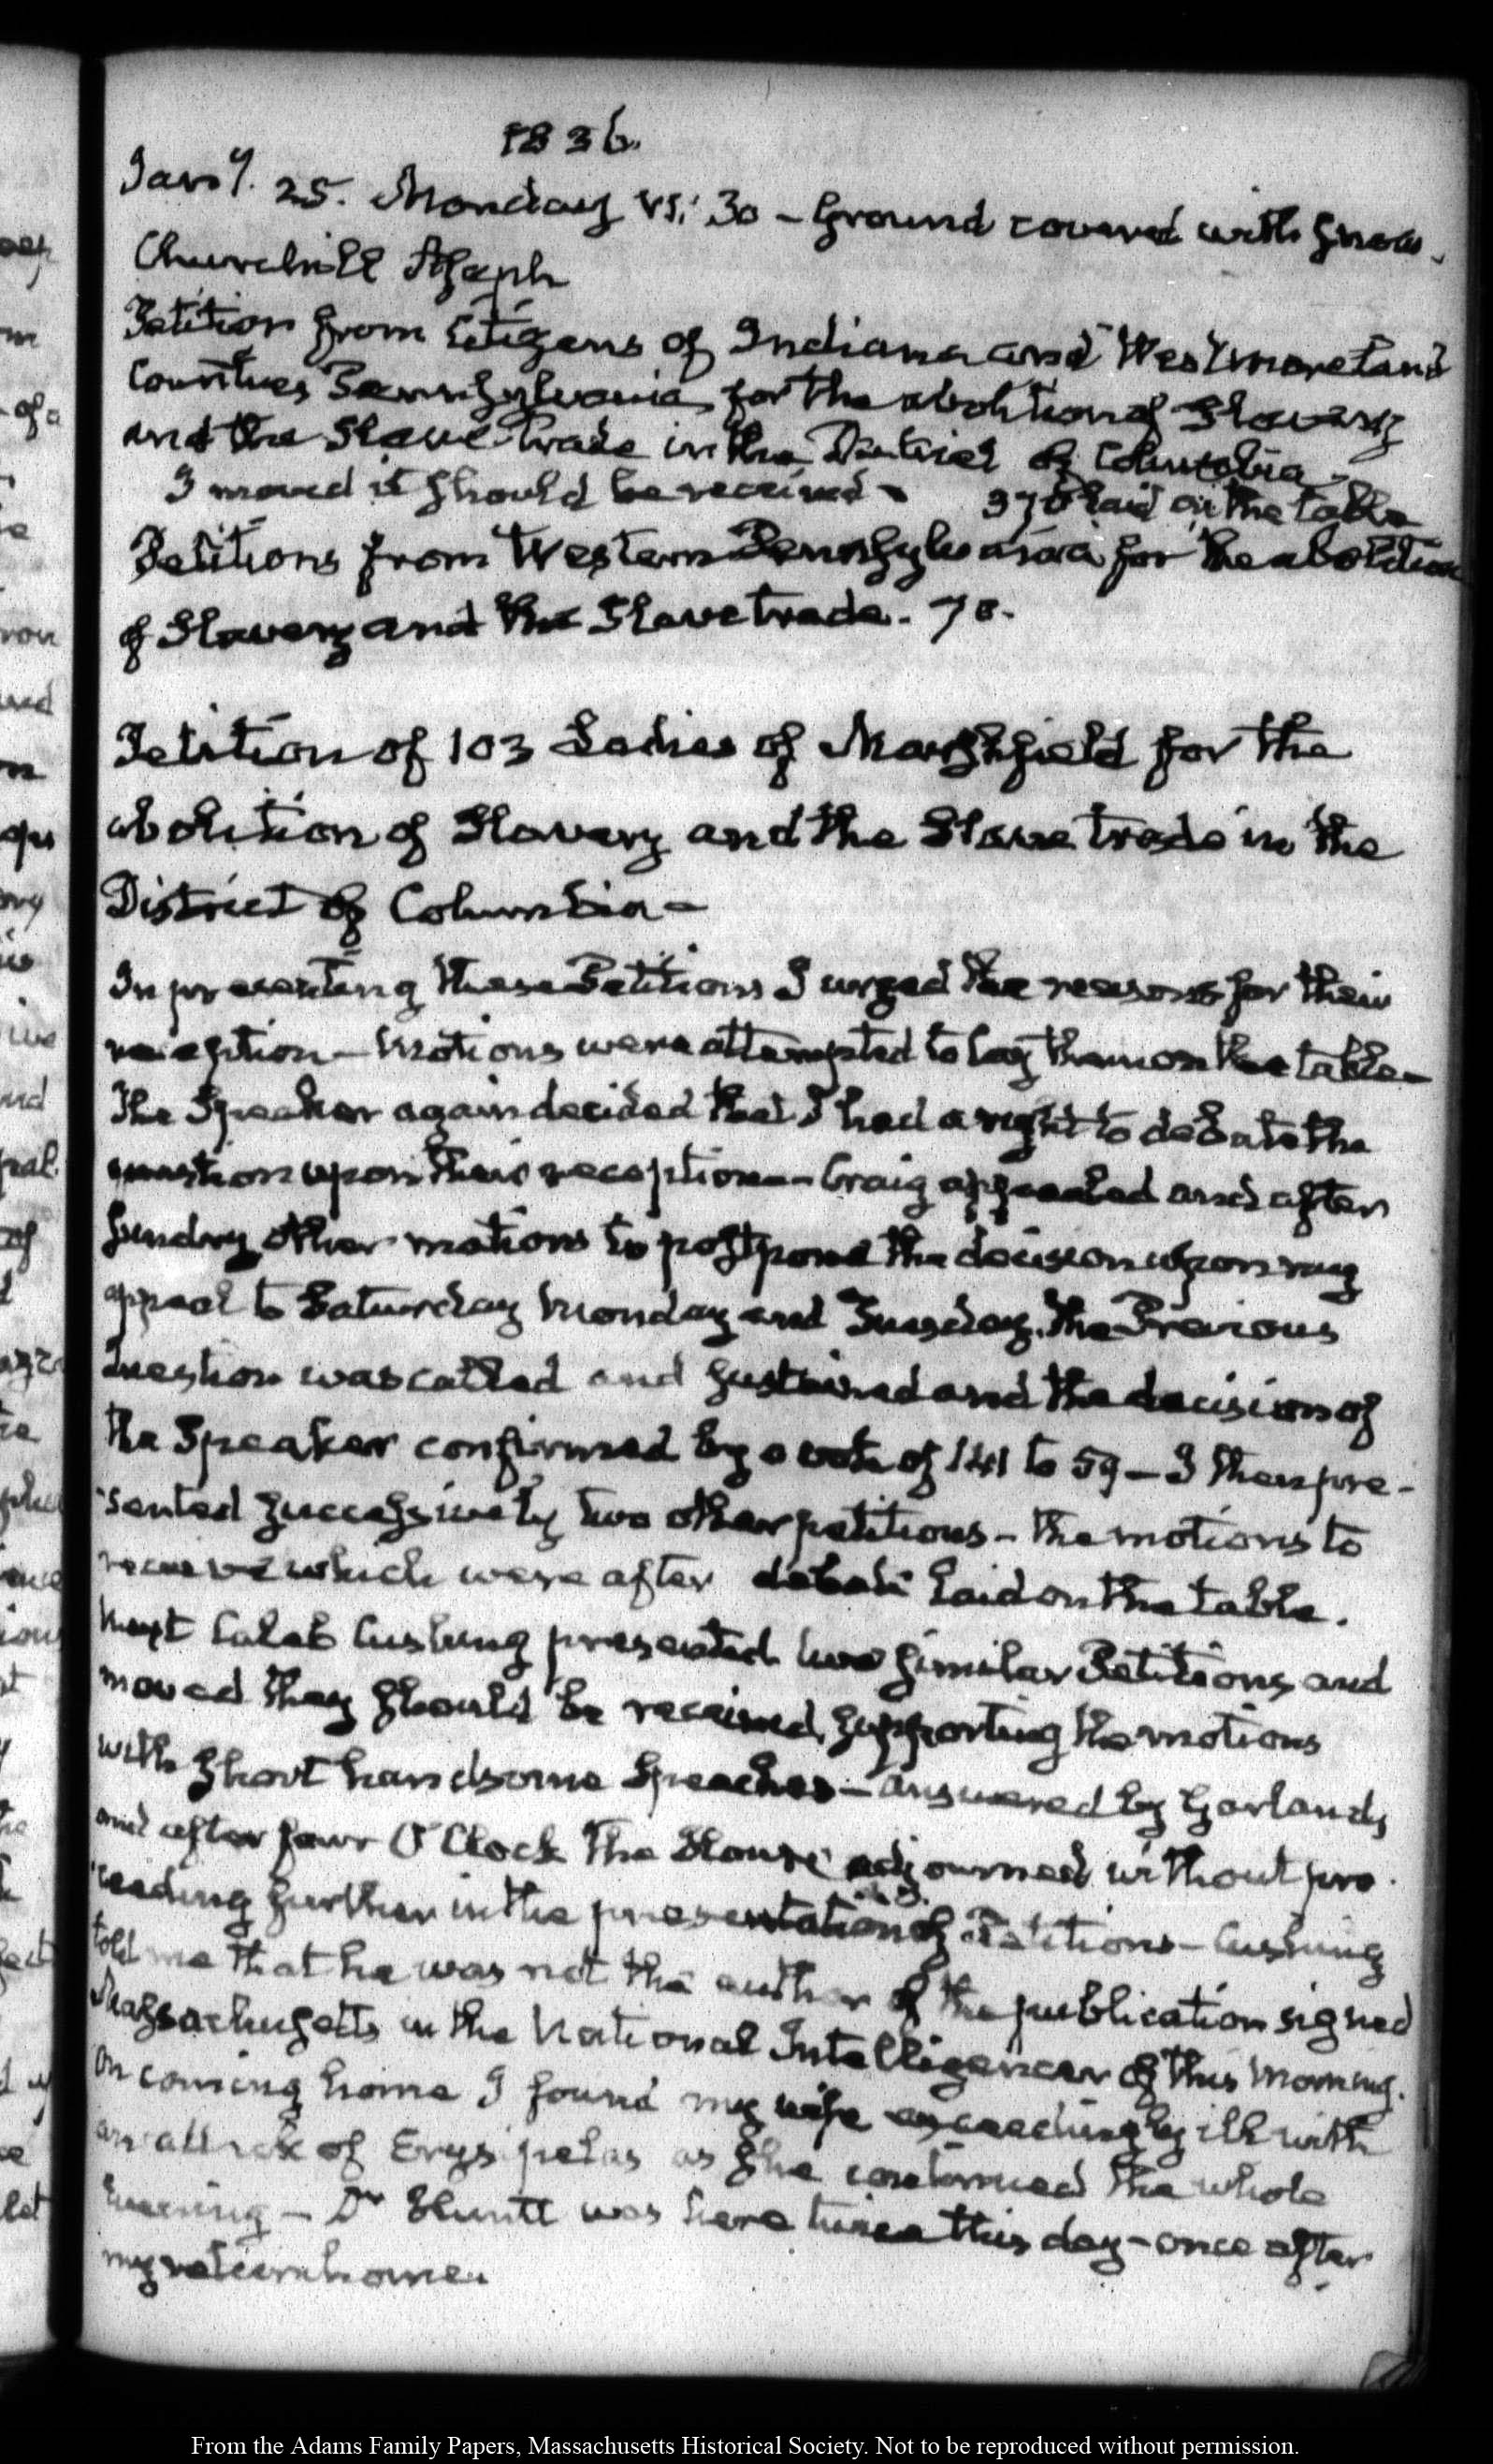 1836.
Jany. 25. Monday VI: 30 – Ground covered with snow.
Churchill Asaph
Petition from Citizens of Indiana and Westmoreland
Counties Pennsylvania, for the abolition of Slavery
and the Slave trade in the District of Columbia –
I moved it should be received – 370 laid on the table
Petitions from Western Pennsylvania for the abolition
of Slavery and the Slave trade. 78.
Petition of 103 Ladies of Marshfield for the
abolition of Slavery and the Slave trade in the
District of Columbia –
In presenting these Petitions I urged the reasons for their
reception – Motions were attempted to lay them on the table –
The Speaker again decided that I had a right to debate the
question upon their reception – Craig appealed and after
sundry other motions to postpone the decision upon my
appeal to Saturday Monday and Tuesday, the Previous
Question was called and sustained and the decision of
the Speaker confirmed by a vote of 141 to 59 – I then pre-
sented successively two other petitions – the motions to
receive which were after debate laid on the table.
Next Caleb Cushing presented two similar Petitions, and
moved they should be received, supporting the motions
with short handsome Speeches – answered by Garland,
and after four O'Clock the House adjourned without pro-
ceeding further in the presentation of Petitions – Cushing
told me that he was not the author of the publication signed
Massachusetts in the National Intelligencer of this Morning.
On coming home I found my wife exceedingly ill with
an attack of Erysipelas as she continued the whole
Evening – Dr Huntt was here twice this day – once after
my return home.
From the Adams Family Papers, Massachusetts Historical Society. Not to be reproduced without permission.